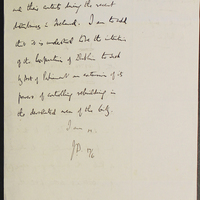 and their contents during the recent
disturbances in Ireland. I am to add
that it is understood to be the intention
of the Corporation of Dublin to seek
by Act of Parliament an extension of its
powers of controlling rebuilding in
the devastated area of the City.
I am